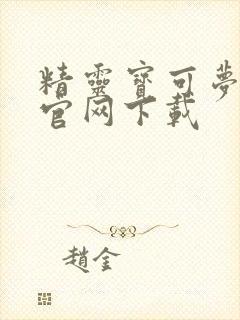 精靈寶可夢
官网下載
趙金